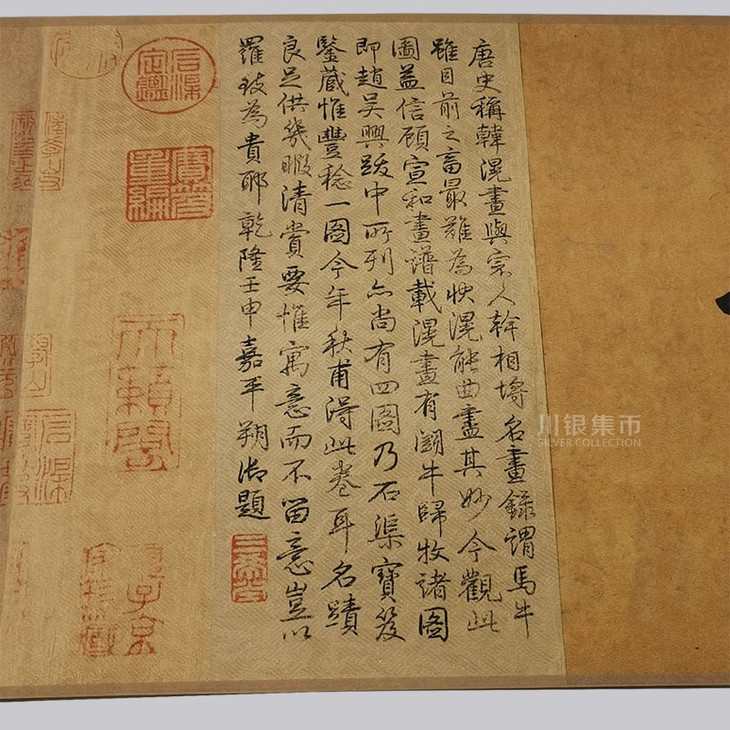 唐史稱韓滉畫與宗人幹相埒名畫錄謂馬牛
雖目前之畜最難為狀滉能曲盡其妙今觀此
圖益信顧宣和畫譜載滉畫有鬭牛歸牧諸圖
即趙吳興跋中所列亦尚有四圖乃石渠寶笈
鑒藏惟豐稔一圖今年秋甫得此卷耳名蹟
良足供幾暇清賞要惟寓意而不留意豈以
羅致為貴耶乾隆壬申嘉平朔御題
石渠定鑑
寶笈重編
天籟閣
子京
川银集市
SILVER COLLECTION